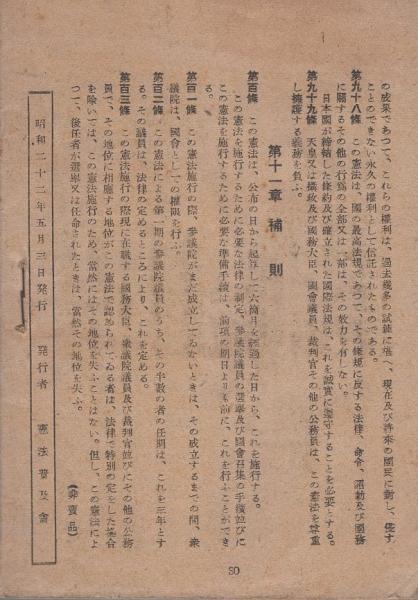 の成果であつて、これらの權利は、過去幾多の試錬に堪へ、現在及び將來の國民に對し、侵す
ことのできない永久の權利として信託されたものである。
第九十八條　この憲法は、國の最高法規であつて、その條規に反する法律、命令、詔勅及び國務
に關するその他の行爲の全部又は一部は、その效力を有しない。
日本國が締結した條約及び確立された國際法規は、これを誠實に遵守することを必要とする。
第九十九條　天皇又は攝政及び國務大臣、國會議員、裁判官その他の公務員は、この憲法を尊重
し擁護する義務を負ふ。
第十一章　補則
第百條　この憲法は、公布の日から起算して六箇月を經過した日から、これを施行する。
この憲法を施行するために必要な法律の制定、參議院議員の選擧及び國會召集の手續並びに
この憲法を施行するために必要な準備手續は、前項の期日よりも前に、これを行ふことができ
る。
第百一條　この憲法施行の際、參議院がまだ成立してゐないときは、その成立するまでの間、衆
議院は、國會としての權限を行ふ。
第百二條　この憲法による第一期の參議院議員のうち、その半數の者の任期は、これを三年とす
る。その議員は、法律の定めるところにより、これを定める。
第百三條　この憲法施行の際現に在職する國務大臣、衆議院議員及び裁判官並びにその他の公務
員で、その地位に相應する地位がこの憲法で認められてゐる者は、法律で特別の定をした場合
を除いては、この憲法施行のため、當然にはその地位を失ふことはない。但し、この憲法によ
つて、後任者が選擧又は任命されたときは、當然その地位を失ふ。
（非賣品）
昭和二十二年五月三日發行　發行者　憲法普及會
30